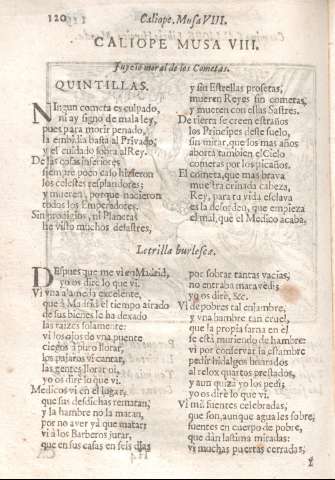 120 Caliope, Musa VIII.
CALIOPE MUSA VIII.
Juyzio moral de los Cometas.
QUINTILLAS.
NIngun cometa es culpado,
ni ay signo de mala ley,
pues para morir penado,
la embidia basta al Privado,
y el cuidado sobra al Rey.
De las cosas inferiores
siempre poco caso hizieron
los celestes resplandores;
y mueren, porque nacieron
todos los Emperadores.
Sin prodigios, ni Planetas
he visto muchos desastres,
y sin Estrellas profetas,
mueren Reyes sin cometas,
y mueren con ellas Sastres.
De tierra se creen estraños
los Principes deste suelo,
sin mirar, que los mas años
aborta tambien el Cielo
cometas por los picaños.
El cometa, que mas brava
muestra crinada cabeça,
Rey, para tu vida esclava
es la desorden, que empieza
el mal, que el Medico acaba.
Letrilla burlesca.
DEspues que me vi en Madrid,
yo os dire lo que vi.
Vi una alameda excelente,
que à Madrid el tiempo airado
de sus bienes le ha dexado
las raizes solamente:
vi los ojos de vna puente
ciegos à puro llorar,
los pajaros vi cantar,
las gentes llorar oì,
yo os diré lo que vi.
Medicos vi en el lugar,
que sus desdichas rematan,
y la hambre no la matan,
por no aver yà que matar;
vi à los Barberos jurar,
que en sus casas en seis dias
por sobrar tantas vacias,
no entraba maravedis;
yo os dire, &c.
Vi de pobres tal enjambre,
y vna hambre tan cruel,
que la propia sarna en èl
se està muriendo de hambre:
vi por conservar la estambre
pedir hidalgos honrados
al relox quartos prestados,
y aun quizà yo los pedi;
yo os dire lo que vi.
Vi mil fuentes celebradas,
que son, aunque agua les sobre,
fuentes en cuerpo de pobre,
que dàn lastima miradas:
vi muchas puertas cerradas;